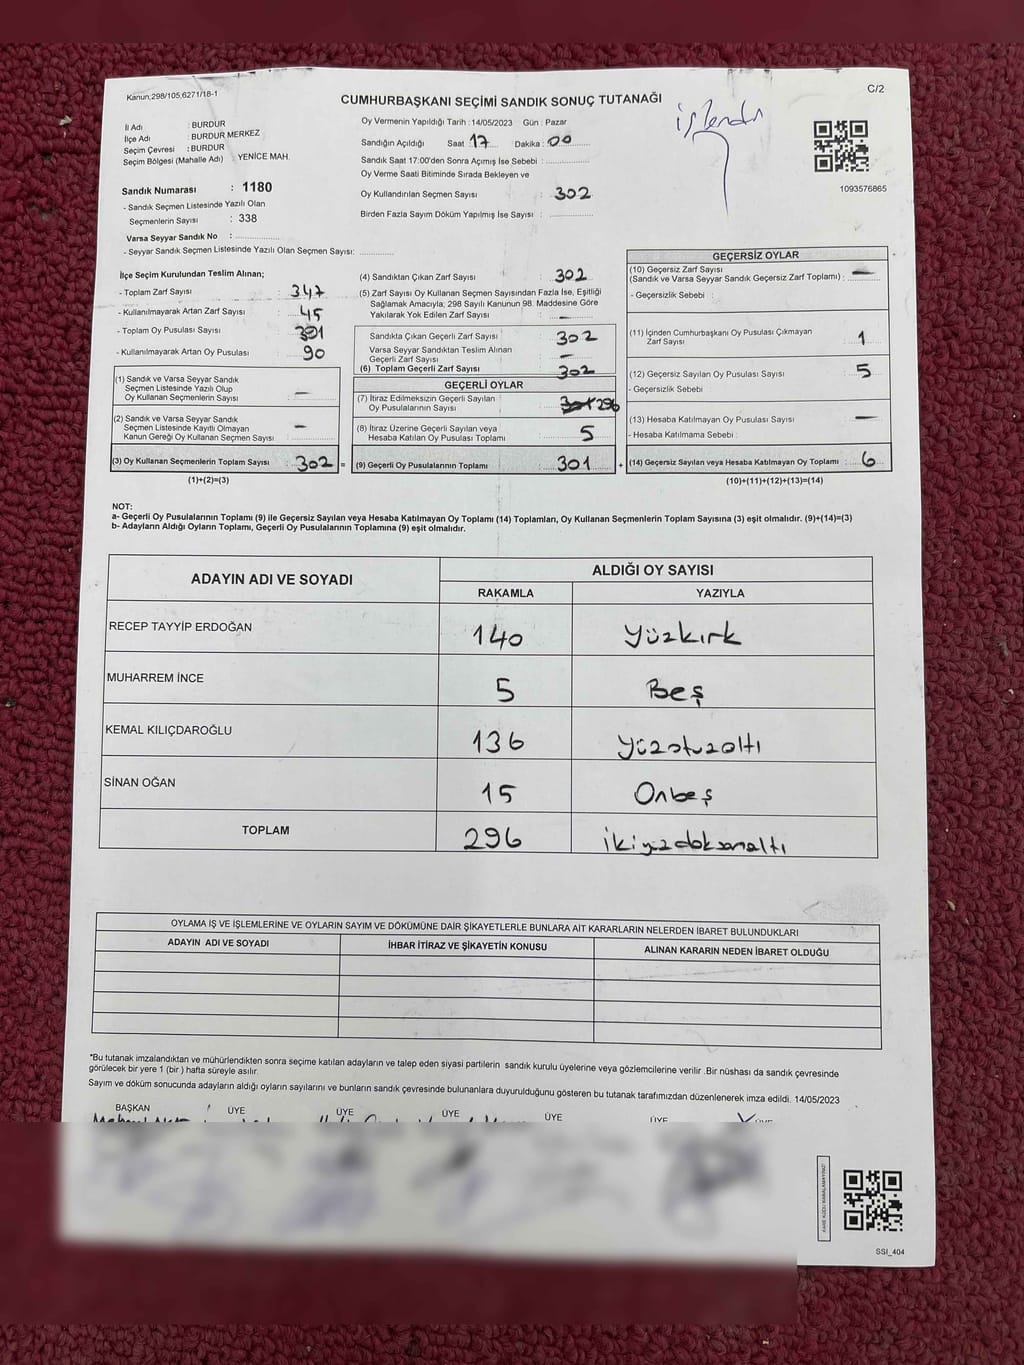 Kanun,298/105,6271/18-1
C/2
CUMHURBAŞKANI SEÇİMİ SANDIK SONUÇ TUTANAĞI
işlendi
İl Adı : BURDUR
İlçe Adı : BURDUR MERKEZ
Seçim Çevresi : BURDUR
Seçim Bölgesi (Mahalle Adı) : YENİCE MAH.
Sandık Numarası : 1180
- Sandık Seçmen Listesinde Yazılı Olan
Seçmenlerin Sayısı : 338
Varsa Seyyar Sandık No :
- Seyyar Sandık Seçmen Listesinde Yazılı Olan Seçmen Sayısı:
Oy Vermenin Yapıldığı Tarih : 14/05/2023 Gün : Pazar
Sandığın Açıldığı Saat : 17 Dakika : 00
Sandık Saat 17:00'den Sonra Açımış İse Sebebi :
Oy Verme Saati Bitiminde Sırada Bekleyen ve
Oy Kullandırılan Seçmen Sayısı : 302
Birden Fazla Sayım Döküm Yapılmış İse Sayısı :
1093576865
İlçe Seçim Kurulundan Teslim Alınan;
- Toplam Zarf Sayısı : 347
- Kullanılmayarak Artan Zarf Sayısı : 45
- Toplam Oy Pusulası Sayısı : 391
- Kullanılmayarak Artan Oy Pusulası : 90
(1) Sandık ve Varsa Seyyar Sandık
Seçmen Listesinde Yazılı Olup
Oy Kullanan Seçmenlerin Sayısı : –
(2) Sandık ve Varsa Seyyar Sandık
Seçmen Listesinde Kayıtlı Olmayan
Kanun Gereği Oy Kullanan Seçmen Sayısı : –
(3) Oy Kullanan Seçmenlerin Toplam Sayısı : 302 =
(1)+(2)=(3)
(4) Sandıktan Çıkan Zarf Sayısı : 302
(5) Zarf Sayısı Oy Kullanan Seçmen Sayısından Fazla İse, Eşitliği
Sağlamak Amacıyla; 298 Sayılı Kanunun 98. Maddesine Göre
Yakılarak Yok Edilen Zarf Sayısı : –
Sandıkta Çıkan Geçerli Zarf Sayısı : 302
Varsa Seyyar Sandıktan Teslim Alınan
Geçerli Zarf Sayısı : –
(6) Toplam Geçerli Zarf Sayısı : 302
GEÇERLİ OYLAR
(7) İtiraz Edilmeksizin Geçerli Sayılan
Oy Pusulalarının Sayısı : 301 296
(8) İtiraz Üzerine Geçerli Sayılan veya
Hesaba Katılan Oy Pusulası Toplamı : 5
(9) Geçerli Oy Pusulalarının Toplamı : 301 +
GEÇERSİZ OYLAR
(10) Geçersiz Zarf Sayısı
(Sandık ve Varsa Seyyar Sandık Geçersiz Zarf Toplamı) : –
- Geçersizlik Sebebi :
(11) İçinden Cumhurbaşkanı Oy Pusulası Çıkmayan
Zarf Sayısı : 1
(12) Geçersiz Sayılan Oy Pusulası Sayısı : 5
- Geçersizlik Sebebi :
(13) Hesaba Katılmayan Oy Pusulası Sayısı : –
- Hesaba Katılmama Sebebi :
(14) Geçersiz Sayılan veya Hesaba Katılmayan Oy Toplamı : 6
(10)+(11)+(12)+(13)=(14)
NOT:
a- Geçerli Oy Pusulalarının Toplamı (9) ile Geçersiz Sayılan veya Hesaba Katılmayan Oy Toplamı (14) Toplamları, Oy Kullanan Seçmenlerin Toplam Sayısına (3) eşit olmalıdır. (9)+(14)=(3)
b- Adayların Aldığı Oyların Toplamı, Geçerli Oy Pusulalarının Toplamına (9) eşit olmalıdır.
ADAYIN ADI VE SOYADI
ALDIĞI OY SAYISI
RAKAMLA YAZIYLA
RECEP TAYYİP ERDOĞAN 140 Yüzkırk
MUHARREM İNCE 5 Beş
KEMAL KILIÇDAROĞLU 136 Yüzotuzaltı
SİNAN OĞAN 15 Onbeş
TOPLAM 296 ikiyüzdoksanaltı
OYLAMA İŞ VE İŞLEMLERİNE VE OYLARIN SAYIM VE DÖKÜMÜNE DAİR ŞİKAYETLERLE BUNLARA AİT KARARLARIN NELERDEN İBARET BULUNDUKLARI
ADAYIN ADI VE SOYADI İHBAR İTİRAZ VE ŞİKAYETİN KONUSU ALINAN KARARIN NEDEN İBARET OLDUĞU
*Bu tutanak imzalandıktan ve mühürlendikten sonra seçime katılan adayların ve talep eden siyasi partilerin sandık kurulu üyelerine veya gözlemcilerine verilir .Bir nüshası da sandık çevresinde
görülecek bir yere 1 (bir ) hafta süreyle asılır.
Sayım ve döküm sonucunda adayların aldığı oyların sayılarını ve bunların sandık çevresinde bulunanlara duyurulduğunu gösteren bu tutanak tarafımızdan düzenlenerek imza edildi. 14/05/2023
BAŞKAN ÜYE ÜYE ÜYE ÜYE ÜYE ÜYE
SSI_404